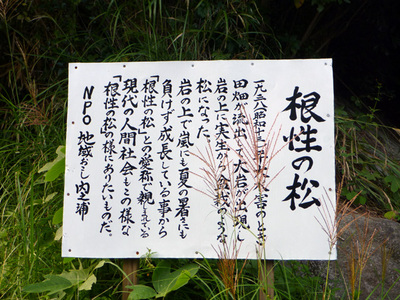 根性の松
一九三八(昭和十三)年大水害のとき
田畑が流出して大岩が出現し
岩の上に実生から盆栽のような
松になった。
岩の上で嵐にも夏の暑さにも
負けず成長している事から
「根性の松」との愛称で親しまれている
現代の人間社会もこの様な
「根性の松」の様にありたいものだ。
NPO 地域おこし内之浦